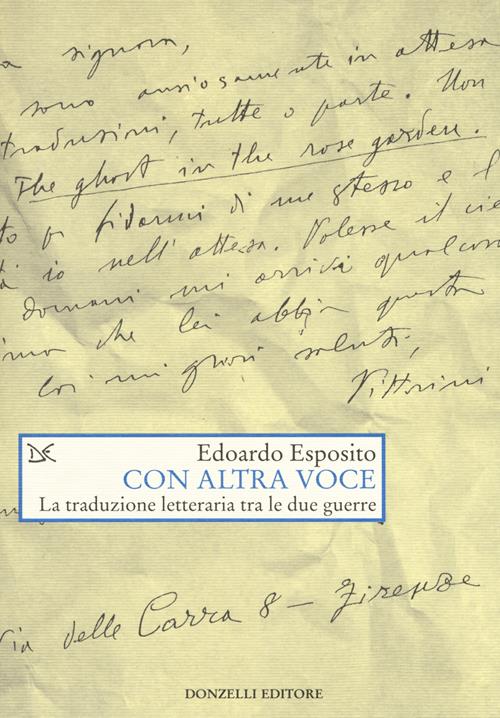 a signora,
sono ansiosamente in attesa
traduzioni, tutte o parte. Non
The ghost in the rose garden.
to fidarmi di me stesso e l
io nell'attesa. Volesse il cie
domani mi arrivi qualcosa
che lei abbia questa
miei saluti,
Vittorini
DE
Edoardo Esposito
CON ALTRA VOCE
La traduzione letteraria tra le due guerre
Via delle Carra 8 – Firenze
DONZELLI EDITORE